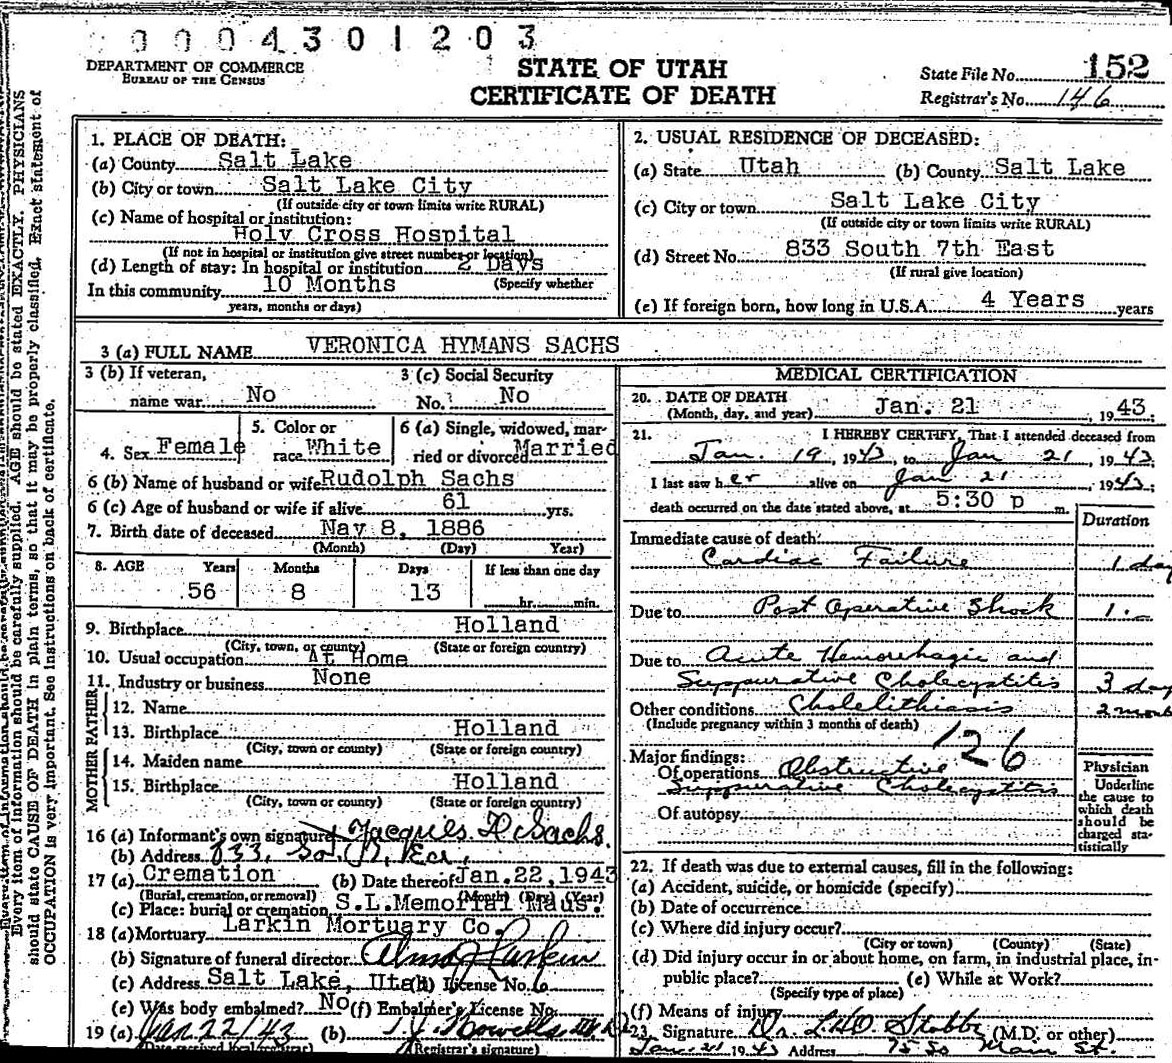 0004301203
DEPARTMENT OF COMMERCE
BUREAU OF THE CENSUS
STATE OF UTAH
CERTIFICATE OF DEATH
State File No. 152
Registrar's No. 146
Every item of information should be carefully supplied. AGE should be stated EXACTLY. PHYSICIANS
should state CAUSE OF DEATH in plain terms, so that it may be properly classified. Exact statement of
OCCUPATION is very important. See instructions on back of certificate.
1. PLACE OF DEATH:
(a) County Salt Lake
(b) City or town Salt Lake City
(If outside city or town limits write RURAL)
(c) Name of hospital or institution:
Holy Cross Hospital
(If not in hospital or institution give street number or location)
(d) Length of stay: In hospital or institution 2 Days
In this community 10 Months (Specify whether
years, months or days)
2. USUAL RESIDENCE OF DECEASED:
(a) State Utah (b) County Salt Lake
(c) City or town Salt Lake City
(If outside city or town limits write RURAL)
(d) Street No. 833 South 7th East
(If rural give location)
(e) If foreign born, how long in U.S.A. 4 Years years
3 (a) FULL NAME VERONICA HYMANS SACHS
3 (b) If veteran, name war No
3 (c) Social Security No. No
4. Sex Female
5. Color or race White
6 (a) Single, widowed, married or divorced Married
6 (b) Name of husband or wife Rudolph Sachs
6 (c) Age of husband or wife if alive 61 yrs.
7. Birth date of deceased Nay 8, 1886
(Month) (Day) Year)
8. AGE Years Months Days If less than one day
56 8 13 hr. min.
9. Birthplace Holland
(City, town, or county) (State or foreign country)
10. Usual occupation At Home
11. Industry or business None
FATHER
12. Name
13. Birthplace Holland
(City, town or county) (State or foreign country)
MOTHER
14. Maiden name
15. Birthplace Holland
(City, town or county) (State or foreign country)
16 (a) Informant's own signature Jacques H. Sachs.
(b) Address 833, So.
17 (a) Cremation (b) Date thereof Jan.22,1943
(Burial, cremation, or removal) (Month) (Day) (Year)
(c) Place: burial or cremation S.L.Memorial Maus.
18 (a) Mortuary Larkin Mortuary Co.
(b) Signature of funeral director Alma J Larkin
(c) Address Salt Lake, Utah (d) License No. 6
(e) Was body embalmed? No (f) Embalmer's License No.
19 (a) Jan 22/43 (b) T. J. Howells
(Registrar's signature)
MEDICAL CERTIFICATION
20. DATE OF DEATH
(Month, day, and year) Jan. 21, 1943.
21. I HEREBY CERTIFY, That I attended deceased from
Jan. 19, 1943, to Jan 21, 1943;
I last saw her alive on Jan 21 1943;
death occurred on the date stated above, at 5:30 p m.
Duration
Immediate cause of death:
Cardiac Failure 1 day
Due to Post Operative Shock 1 "
Due to Acute Hemorrhagic and
Suppurative Cholecystitis 3 day
Other conditions Cholelithiasis 2 mont
(Include pregnancy within 3 months of death)
126
Major findings:
Of operations Obstructive
Suppurative Cholecystitis
Of autopsy
Physician
Underline
the cause to
which death
should be
charged sta-
tistically
22. If death was due to external causes, fill in the following:
(a) Accident, suicide, or homicide (specify)
(b) Date of occurrence
(c) Where did injury occur?
(City or town) (County) (State)
(d) Did injury occur in or about home, on farm, in industrial place, in-
public place? (e) While at Work?
(Specify type of place)
(f) Means of injury
23. Signature Dr. (M.D. or other)
Jan. 21 1943 Address 75 So Main St.